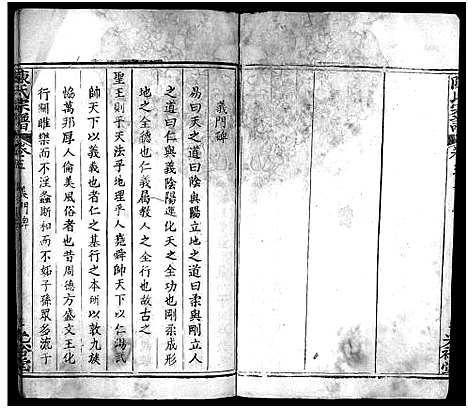 陳氏宗譜
義門碑
易曰立天之道曰陰與陽立地之道曰柔與剛立人
之道曰仁與義陰陽運化天之全功也柔剛成形
地之全德也仁義屬教人之全行也故古之
聖王則乎天法乎地理乎人堯舜帥天下以仁湯武
帥天下以義義也者仁之基行之本所以敦九族
恊萬邦厚人倫美風俗者也昔周德方盛文王化
行關雎樂而不淫螽斯和而不妬子孫眾多流于
陳氏宗譜
義門碑